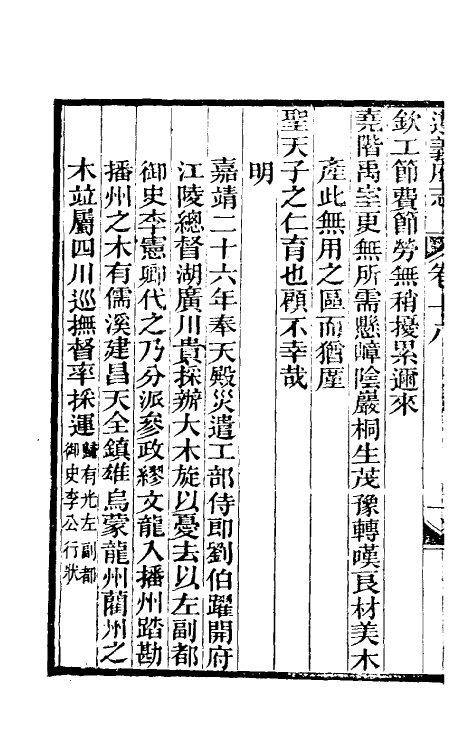 遵義府志　卷十八
欽工節費節勞無稍擾累邇來
堯階禹室更無所需懸嶂陰巖桐生茂豫轉嘆良材美木
產此無用之區而猶厪
聖天子之仁育也顧不幸哉
明
嘉靖二十六年奉天殿災遣工部侍卽劉伯躍開府
江陵總督湖廣川貴採辦大木旋以憂去以左副都
御史李憲卿代之乃分派參政繆文龍入播州踏勘
播州之木有儒溪建昌天全鎮雄烏蒙龍州藺州之
木竝屬四川巡撫督率採運歸有光左副都
御史李公行狀